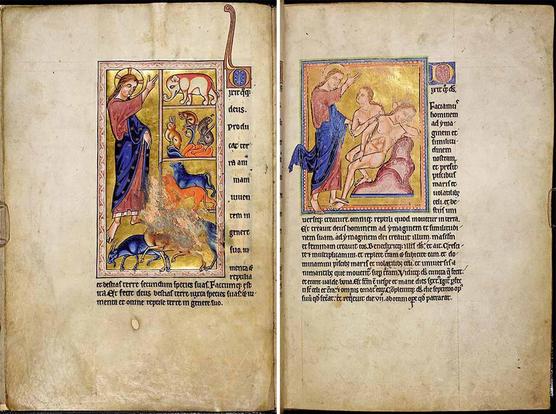 ixit q;
deus.
Produ
cat ter
ra ani
mam
uiuen
tem in
genere
suo. iu
menta &
reptilia
et bestias terre secundum species suas. Factumq; est
ita. Et fecit deus bestias terre iuxta species suas. & iu
menta et omne reptile terre in genere suo.
ixit q; ds.
Faciam⁹
hominem
ad yma
ginem et
similitu
dinem
nostram,
et presit
piscibus
maris et
uolatilib;
et be
stiis uni
uerseq; creature. omniq; reptili quod mouetur in terra.
Et creauit deus hominem ad ymaginem et similitudi
nem suam. ad ymaginem dei creauit illum. masclm
et feminam creauit eos. Benedixitq; illis ds et ait. Cresci
te & multiplicamini et replete terram & subicite eam & do
minamini piscib; maris & uolatilib; celi. et uniuersis a
nimantib; que mouentur sup terram. Viditq; ds cuncta q fecit
et erant ualde bona. Et factum ē uespe et mane dies sext⁹.